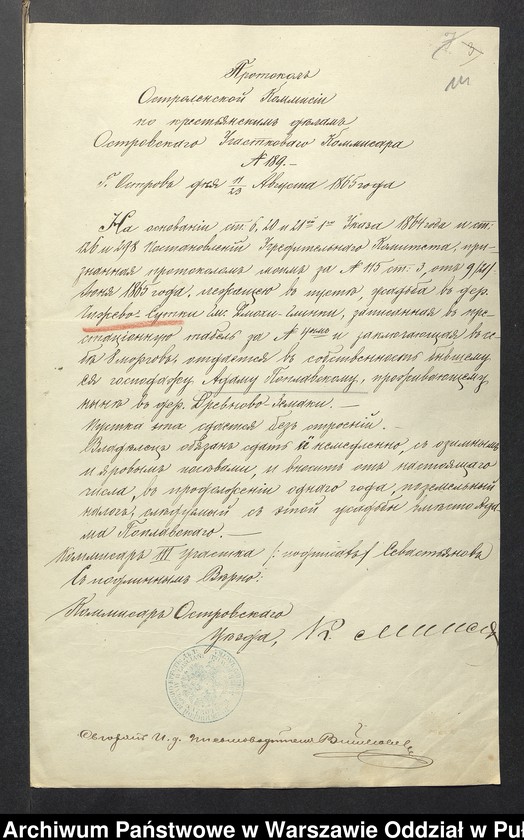 Протоколъ
Остроленской Коммисіи
по крестьянскимъ дѣламъ
Островскаго Участковаго Коммисара
№ 189.-
Г. Островъ дня 11/23 Августа 1865 года
На основаніи ст. 6, 20 и 21й 1го Указа 1864 года и ст:
126 и 248 Постановленій Учредительнаго Комитета, при-
знанная протоколомъ моимъ за № 115 ст: 3, отъ 9/21
Іюня 1865 года, лежащею въ пустѣ, усадьба въ дер.
Чижево-Сутки, записанная въ пре-
стаціонную табель за № и заключающая въ се-
бѣ 8 морговъ, отдается въ собственность бывшему
ея господарю, Адаму Поплавскому, проживающему
нынѣ въ дер. Древново-Земаки. —
Пустка эта сдается безъ отросній. —
Владѣлецъ обязанъ сдать её немедленно, съ озимымъ
и яровымъ посѣвами, и вносить отъ настоящаго
числа, въ продолженіи одного года, поземельный
налогъ, слѣдуемый съ этой усадьбы вмѣсто Ада-
ма Поплавскаго. —
Коммисаръ III участка /: подписалъ/ Севастьяновъ
Съ подлиннымъ Вѣрно:
Коммисаръ Островскаго
Уѣзда,
И. д. Письмоводителя
Archiwum Państwowe w Warszawie Oddział w Puł